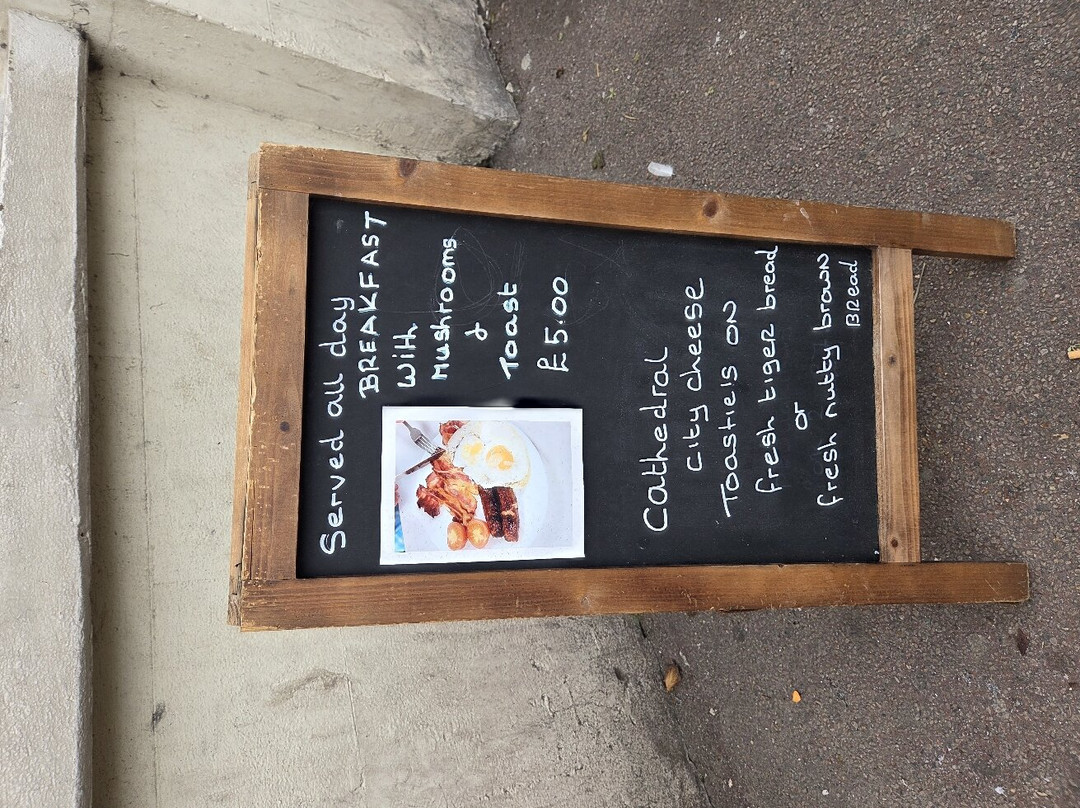 Served all day
BREAKFAST
With
Mushrooms
&
Toast
£5.00
Cathedral
City cheese
Toastie's ON
fresh tiger bread
or
fresh nutty brown
BRead